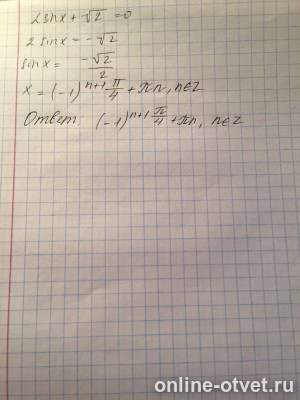 2 sin x + √2 = 0
2 sin x = -√2
sin x = -√2/2
x = (-1)^(n+1) π/4 + πn, n∈z
Ответ: (-1)^(n+1) π/4 + πn, n∈z
online-otvet.ru